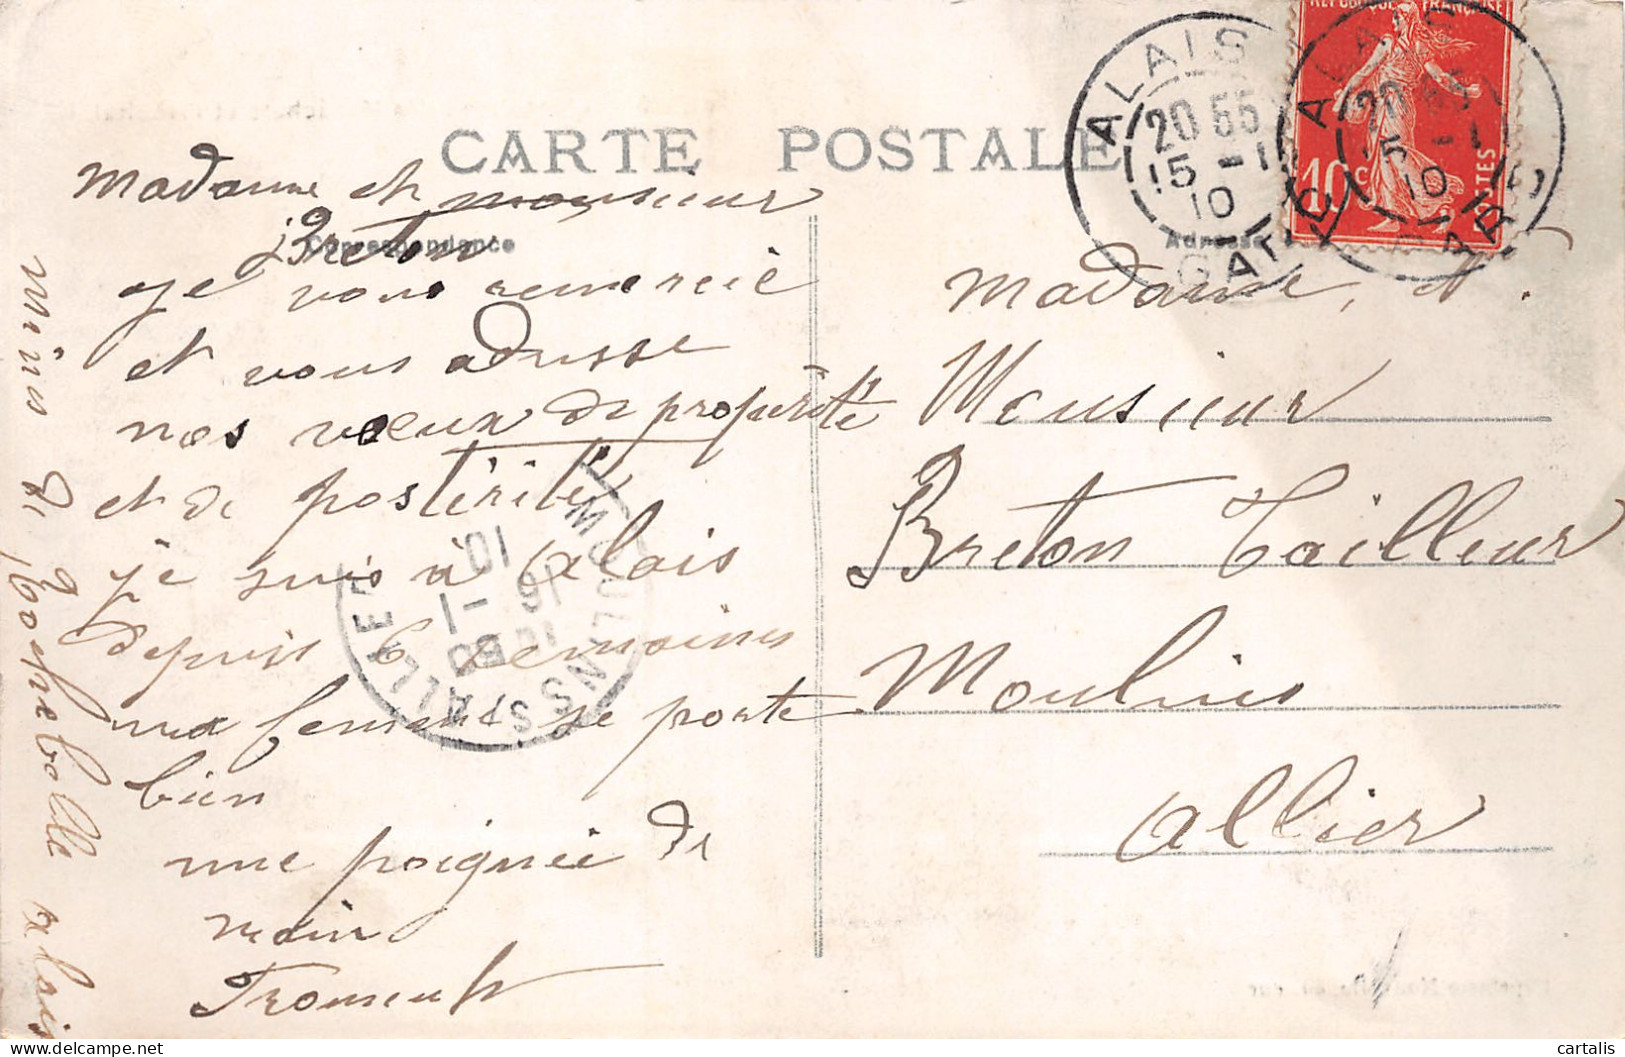 CARTE POSTALE
Correspondance
Adresse
madame et monsieur
Breton
je vous remercie
et vous adresse
nos vœux de properité
et de postérité
je suis à alais
depuis 6 semaines
ma femme se porte
bien
une poignée de
main
mins de Rochebelle alais
Madame, et
Monsieur
Breton Tailleur
Moulins
allier
ALAIS
20 55
15 -1
10
GARD
ALAIS
20 55
15 -1
10
GARD
REPUBLIQUE FRANÇAISE
10c
POSTES
MOULINS S/ ALLIER
16 -1
10
cartalis